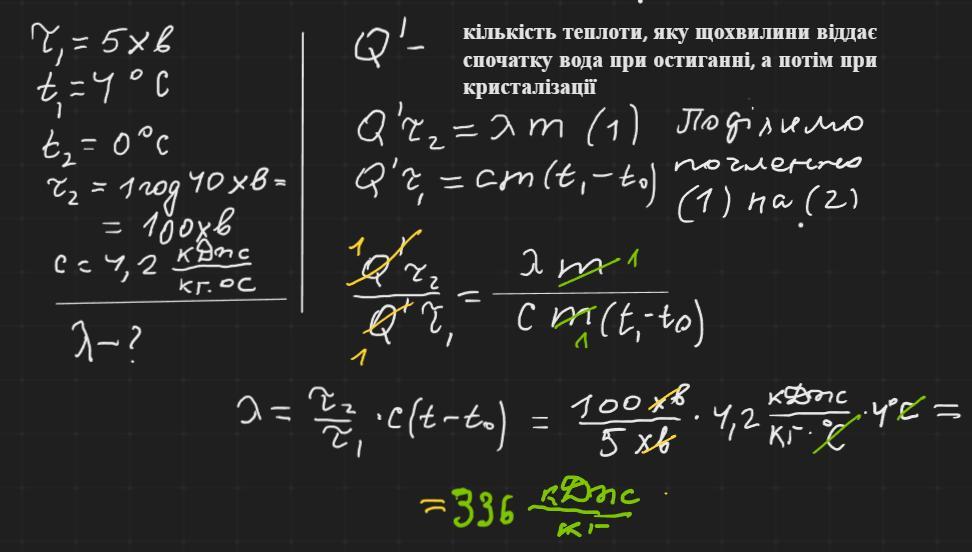 τ₁ = 5 хв
t₁ = 4 °C
t₂ = 0 °C
τ₂ = 1 год 40 хв =
= 100 хв
c = 4,2 кДж/кг·°C
λ – ?
Q' – кількість теплоти, яку щохвилини віддає
спочатку вода при остиганні, а потім при
кристалізації
Q'τ₂ = λm (1) Поділимо
Q'τ₁ = cm(t₁ – t₀) почленно
(1) на (2)
Q'τ₂ / Q'τ₁ = λm / cm(t₁ – t₀)
1 1 1 1
λ = τ₂/τ₁ · c(t – t₀) = 100 хв / 5 хв · 4,2 кДж/кг·°C · 4°C =
= 336 кДж/кг